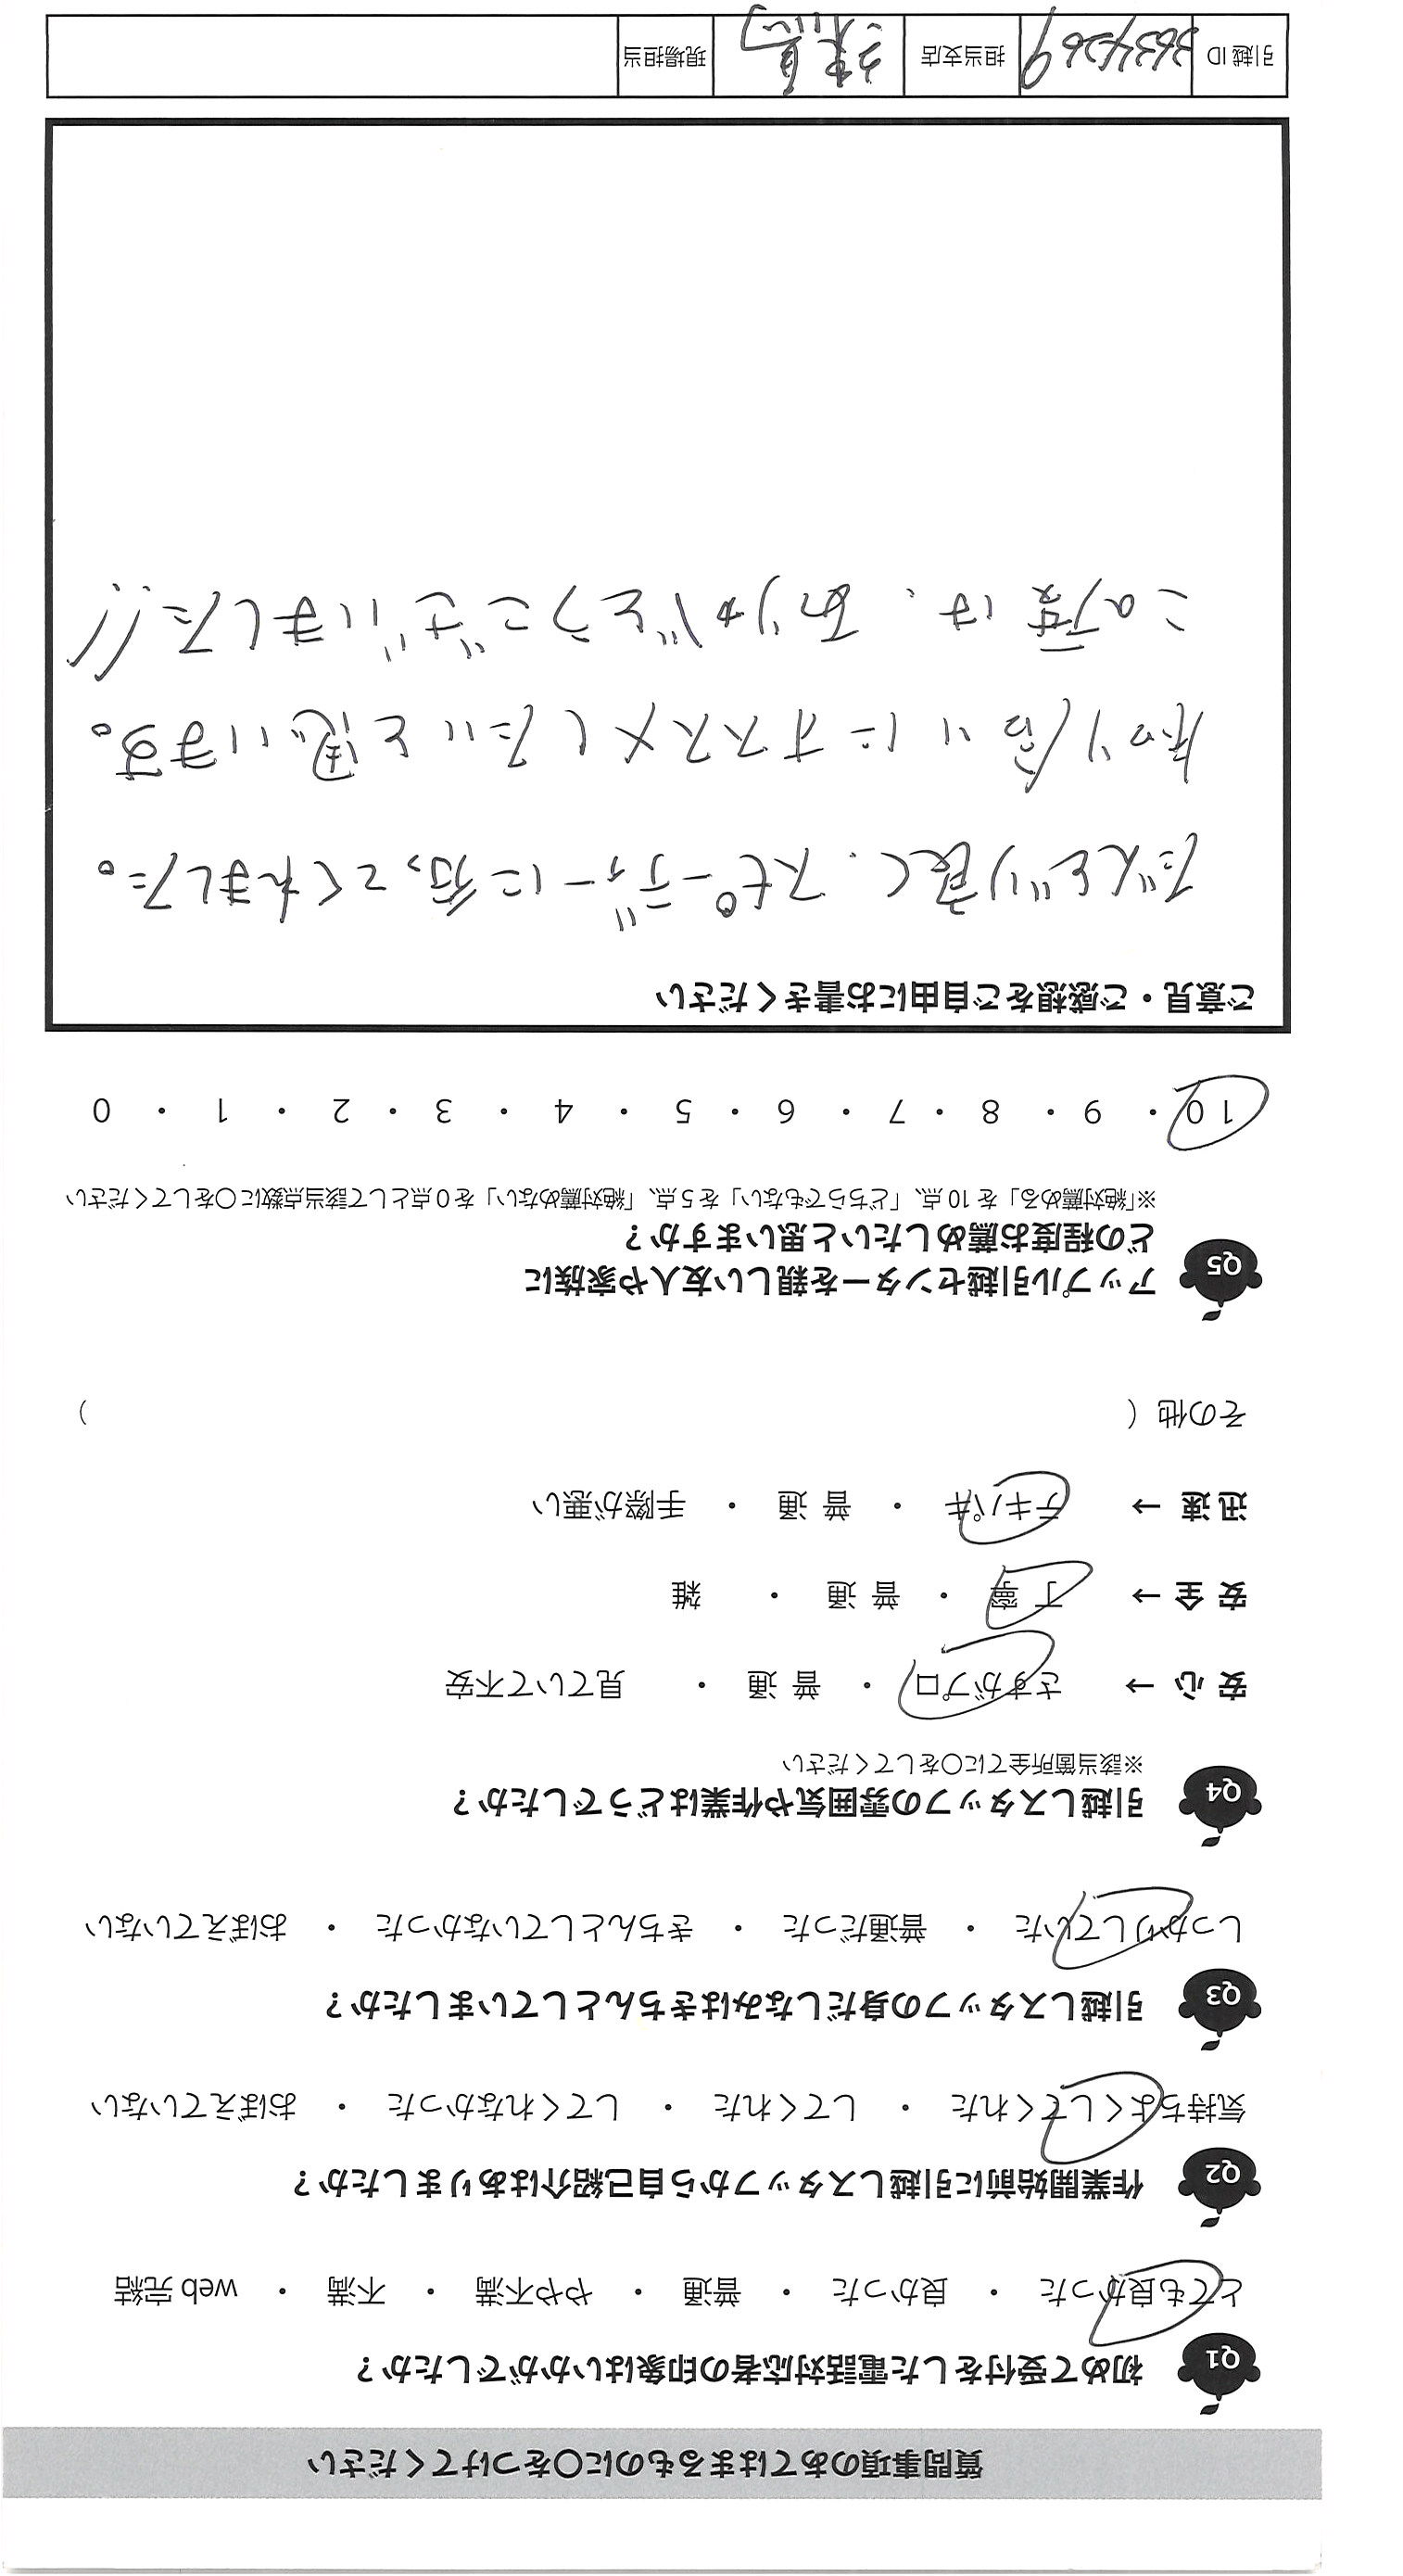 質問事項のあてはまるものに○をつけてください
Q1 初めて受付をした電話対応者の印象はいかがでしたか？
とても良かった ・ 良かった ・ 普通 ・ やや不満 ・ 不満 ・ web 完結
Q2 作業開始前に引越しスタッフから自己紹介はありましたか？
気持ちよくしてくれた ・ してくれた ・ してくれなかった ・ おぼえていない
Q3 引越しスタッフの身だしなみはきちんとしていましたか？
しっかりしていた ・ 普通だった ・ きちんとしていなかった ・ おぼえていない
Q4 引越しスタッフの雰囲気や作業はどうでしたか？
※該当箇所全てに○をしてください
安 心 → さすがプロ ・ 普 通 ・ 見ていて不安
安 全 → 丁 寧 ・ 普 通 ・ 雑
迅 速 → テキパキ ・ 普 通 ・ 手際が悪い
その他（ ）
Q5 アップル引越センターを親しい友人や家族に
どの程度お薦めしたいと思いますか？
※「絶対薦める」を 10 点、「どちらでもない」を 5 点、「絶対薦めない」を 0 点として該当点数に○をしてください
10 ・ 9 ・ 8 ・ 7 ・ 6 ・ 5 ・ 4 ・ 3 ・ 2 ・ 1 ・ 0
ご意見・ご感想をご自由にお書きください
だんどり良く、スピーディーに行ってくれました。
知り合いにオススメしたいと思います。
この度は、ありがとうございました!!
引越 ID 3634269 担当支店 現場担当